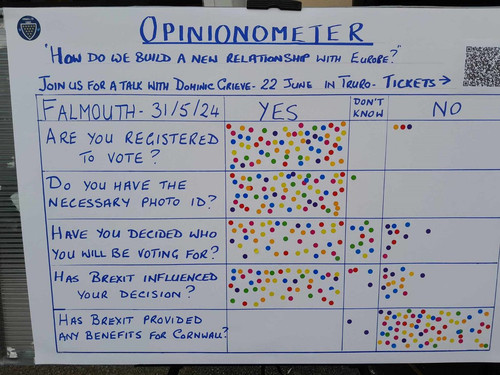 OPINIONOMETER
"HOW DO WE BUILD A NEW RELATIONSHIP WITH EUROPE?"
JOIN US FOR A TALK WITH DOMINIC GRIEVE - 22 JUNE IN TRURO - TICKETS →
FALMOUTH - 31/5/24 YES DON'T KNOW NO
ARE YOU REGISTERED
TO VOTE?
DO YOU HAVE THE
NECESSARY PHOTO ID?
HAVE YOU DECIDED WHO
YOU WILL BE VOTING FOR?
HAS BREXIT INFLUENCED
YOUR DECISION?
HAS BREXIT PROVIDED
ANY BENEFITS FOR CORNWALL?